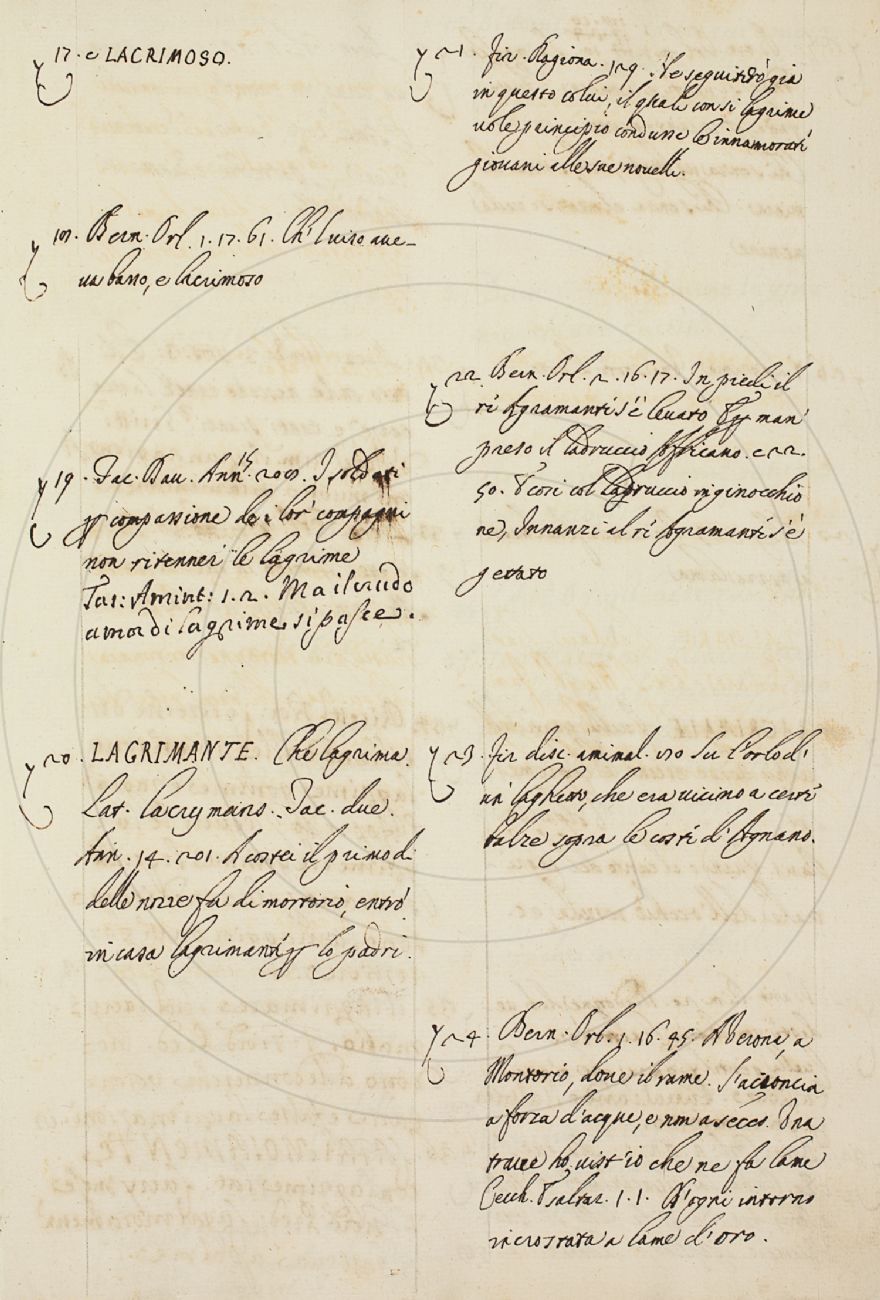 17. e LACRIMOSO.
Bern. Orl. 1. 17. 61. Ch'l viso ave-
va basso, e lacrimoso
19. Tac. Dav. Ann. I soldati
compassione de i lor' compagni
non ritenner le lagrime
Tas: Amint: 1. 2. Ma il crudo
amor di lagrime si pasce.
20. LAGRIMANTE. Che lagrima.
Lat. lacrymans. Tac. dav.
Ann. 14. 201. A costei il primo dì
delle nozze fu di mortorio, entrò
in casa lagrimante lo padre.
21. fir. Ragiona. 129.
in questo colui, il quale con sì lagrime
vole principio condusse le innamorate
giovani alle sue novelle.
22. Bern. Orl. 2. 16. 17. In piedi il
re Agramante s'è levato man'
preso il Africano. e 22.
50. E così col inginocchio
ne, Innanzi al re Agramante s'è
gettato
23. fir disc. animal. Su l'orlo d'
un' laghetto, che era vicino a certe
balze sopra le coste d'Agnano.
24. Bern. Orl. 1. 16. 45. A Verona, a
Montorio, dove il rame. S'acconcia
a forza d'acque, e non a secco. Una
trave ho vist'io che ne fa lame
Cecch. Esaltaz. 1. 1. D'ogni intorno
incrostata a lame d'oro.